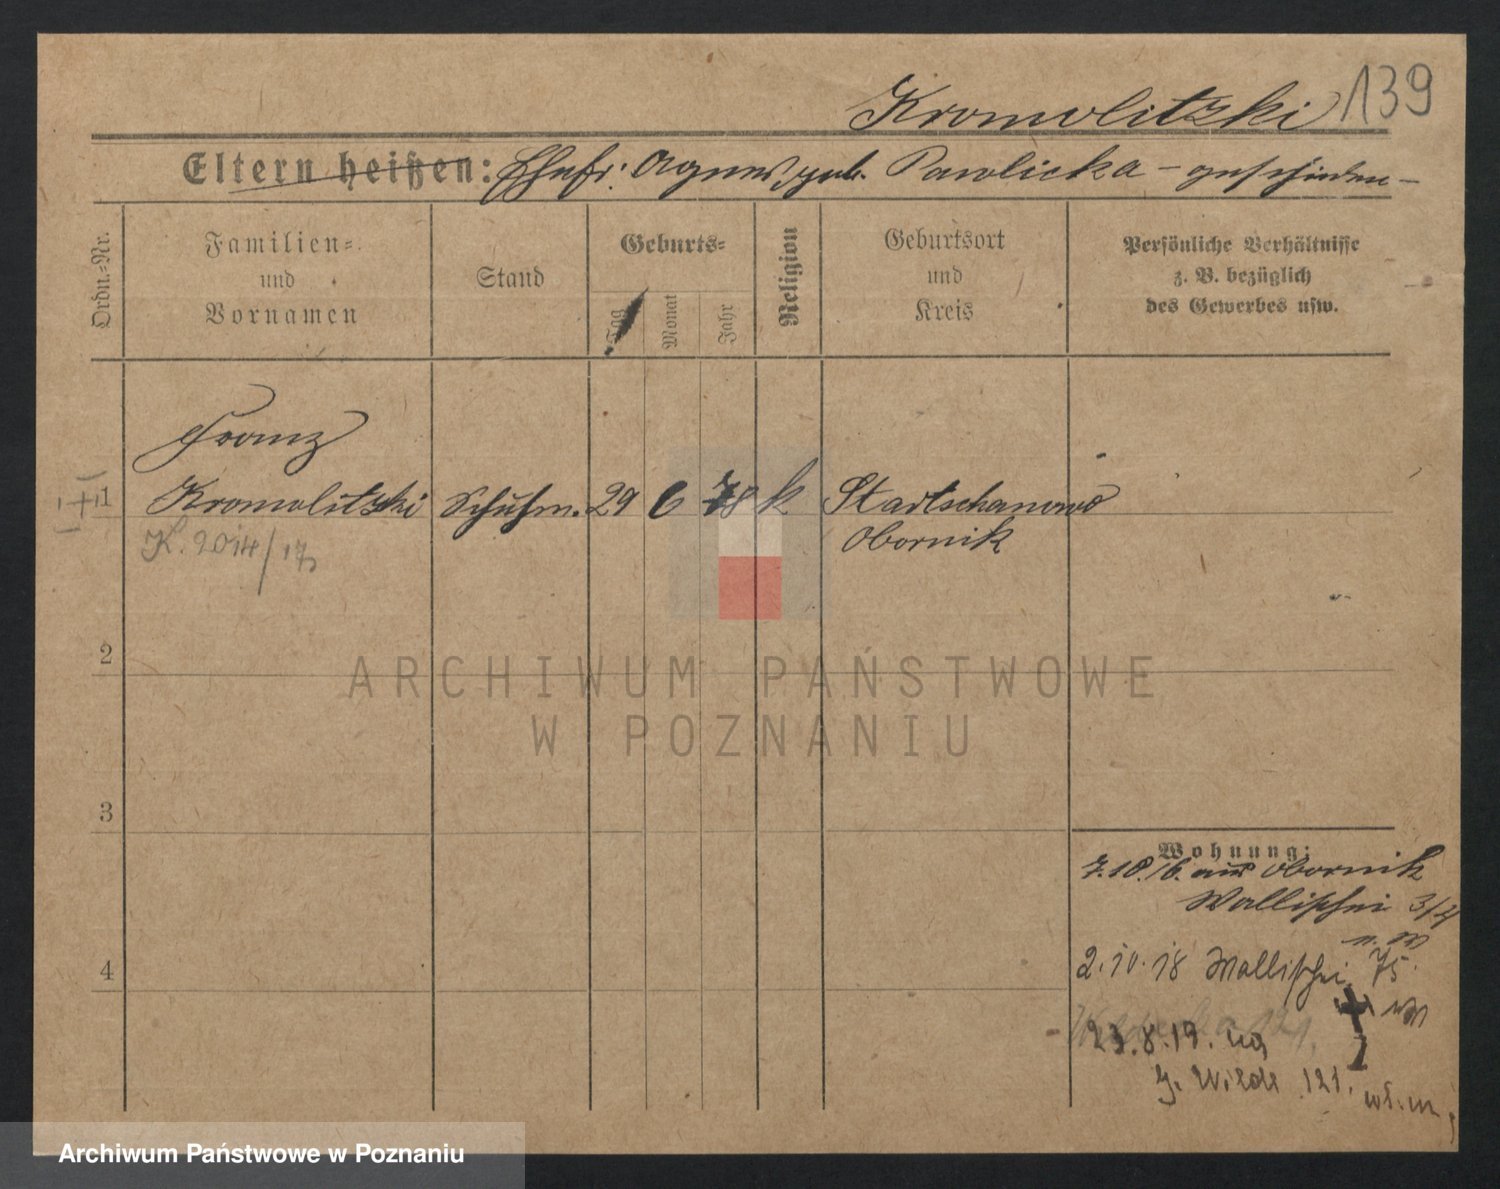 Kromolitzki 139
Eltern heißen: Ehefr: Agnes, geb. Pawlicka – geschieden –
Ordn.=Nr.
Familien=
und
Vornamen
Stand
Geburts=
Tag
Monat
Jahr
Religion
Geburtsort
und
Kreis
Persönliche Verhältnisse
z. B. bezüglich
des Gewerbes usw.
Franz
1 Kromolitzki Schuhm. 29 6 78 k Startschanowo
Obornik
K. 2014/17
2
3
4
Wohnung:
7.10.16. aus Obornik
Wallischei 3/4
2.10.18 Wallischei 75.
23.8.19.
G. Wilda 121.
ARCHIWUM PAŃSTWOWE
W POZNANIU
Archiwum Państwowe w Poznaniu